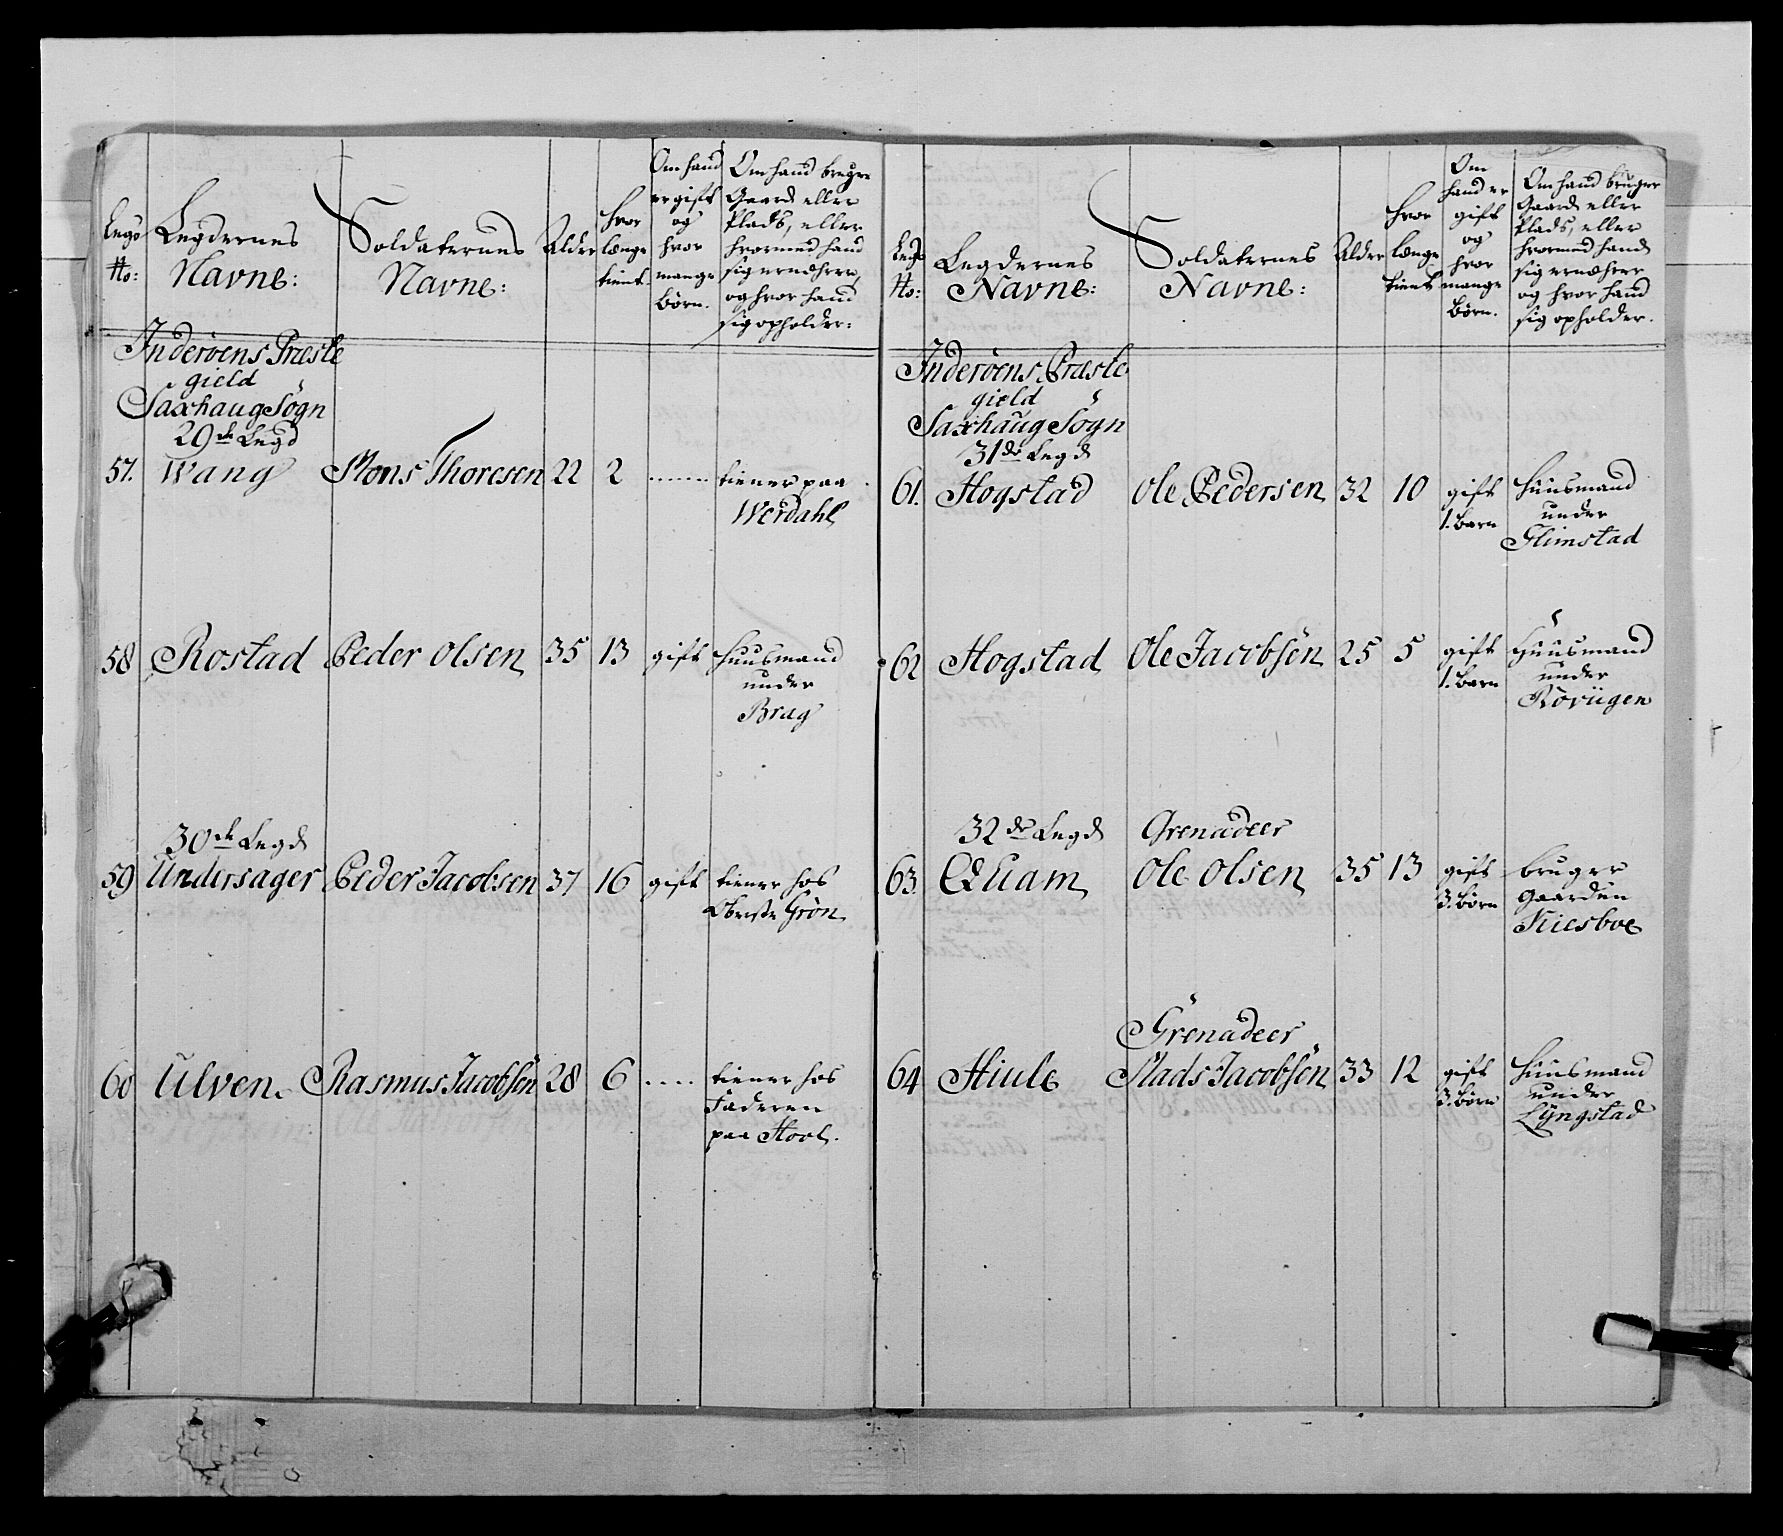 Legs No:
Legdernes Navne:
Soldaternes Navne:
Alder
hvor længe tient.
Om hand er gift og hvor mange børn.
Om hand bruger Gaard eller Plads, eller hvormed hand sig ernæhrer, og hvor hand sig opholder:
Inderøens Præste
gield
Saxhaug Sogn
29de Legd
57. Wang Mons Thoresen 22 2 ....... tiener paa
Werdahl
58 Rostad Peder Olsen 35 13 gift Huusmand
under
Brag
30de Legd
59 Undersager Peder Jacobsen 37 16 gift tiener hos
Obriste Grøn
60 Ulven. Rasmus Jacobsen 28 6 ..... tiener hos
Faderen
paa Hool.
Legs No:
Legdernes Navne:
Soldaternes Navne:
Alder
hvor længe tient
Om hand er gift og hvor mange børn.
Om hand bruger Gaard eller Plads, eller hvormed hand sig ernæhrer og hvor hand sig opholder.
Inderøens Præste
gield
Saxhaug Sogn
31de Legd
61. Hogstad Ole Pedersen 32 10 gift Huusmand
1. barn under
Glimstad
62 Hogstad Ole Jacobsen 25 5 gift Huusmand
1. barn under
Rovügen
32de Legd Grenadeer
63. Quam Ole Olsen 35 13 gift bruger
3. børn Gaarden
Kiesboe
Grenadeer
64 Hiule Mads Jacobsen 33 12 gift Huusmand
3. børn under
Lÿngstad